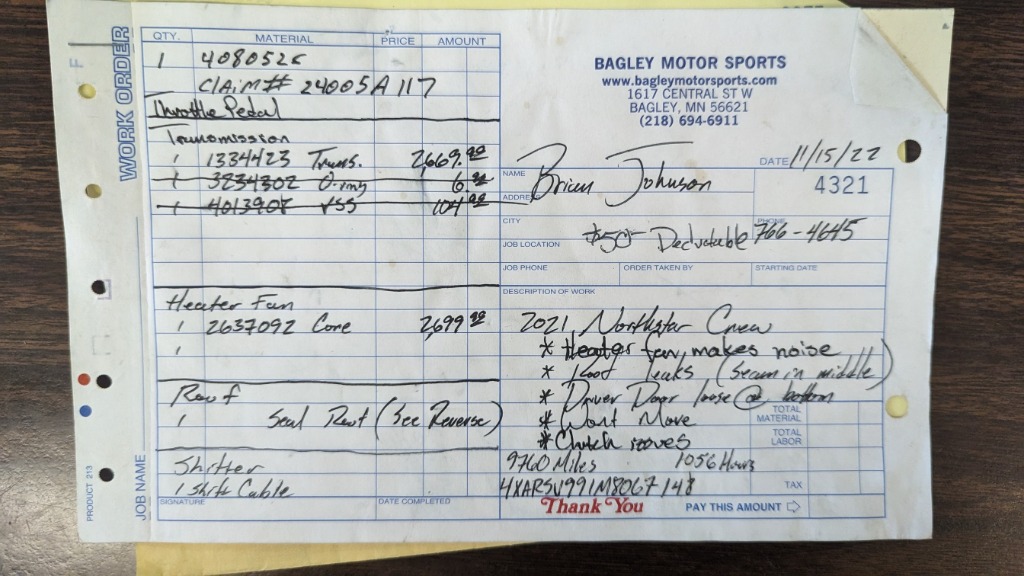 WORK ORDER
QTY. MATERIAL PRICE AMOUNT
1 4080525
Claim# 24005A117
Throttle Pedal
Transmission
1 1334423 Trans. 2669.99
1 3234302 O-ring 6.
1 4013908 VSS 104.99
Heater Fan
1 2637092 Core 2,699.99
1
Roof
1 Seal Roof (See Reverse)
Shifter
1 Shift Cable
SIGNATURE DATE COMPLETED
PRODUCT 213
JOB NAME
BAGLEY MOTOR SPORTS
www.bagleymotorsports.com
1617 CENTRAL ST W
BAGLEY, MN 56621
(218) 694-6911
DATE 11/15/22
NAME Brian Johnson
4321
ADDRE
CITY
PHONE 766-4645
$50- Deductable
JOB LOCATION
JOB PHONE ORDER TAKEN BY STARTING DATE
DESCRIPTION OF WORK
2021 Northstar Crew
* Heater fan makes noise
* Roof leaks (Seam in middle)
* Driver Door loose @ bottom
* Wont Move
* Clutch moves
9760 Miles 1056 Hours
4XARSV991M8067148
TOTAL MATERIAL
TOTAL LABOR
TAX
Thank You
PAY THIS AMOUNT